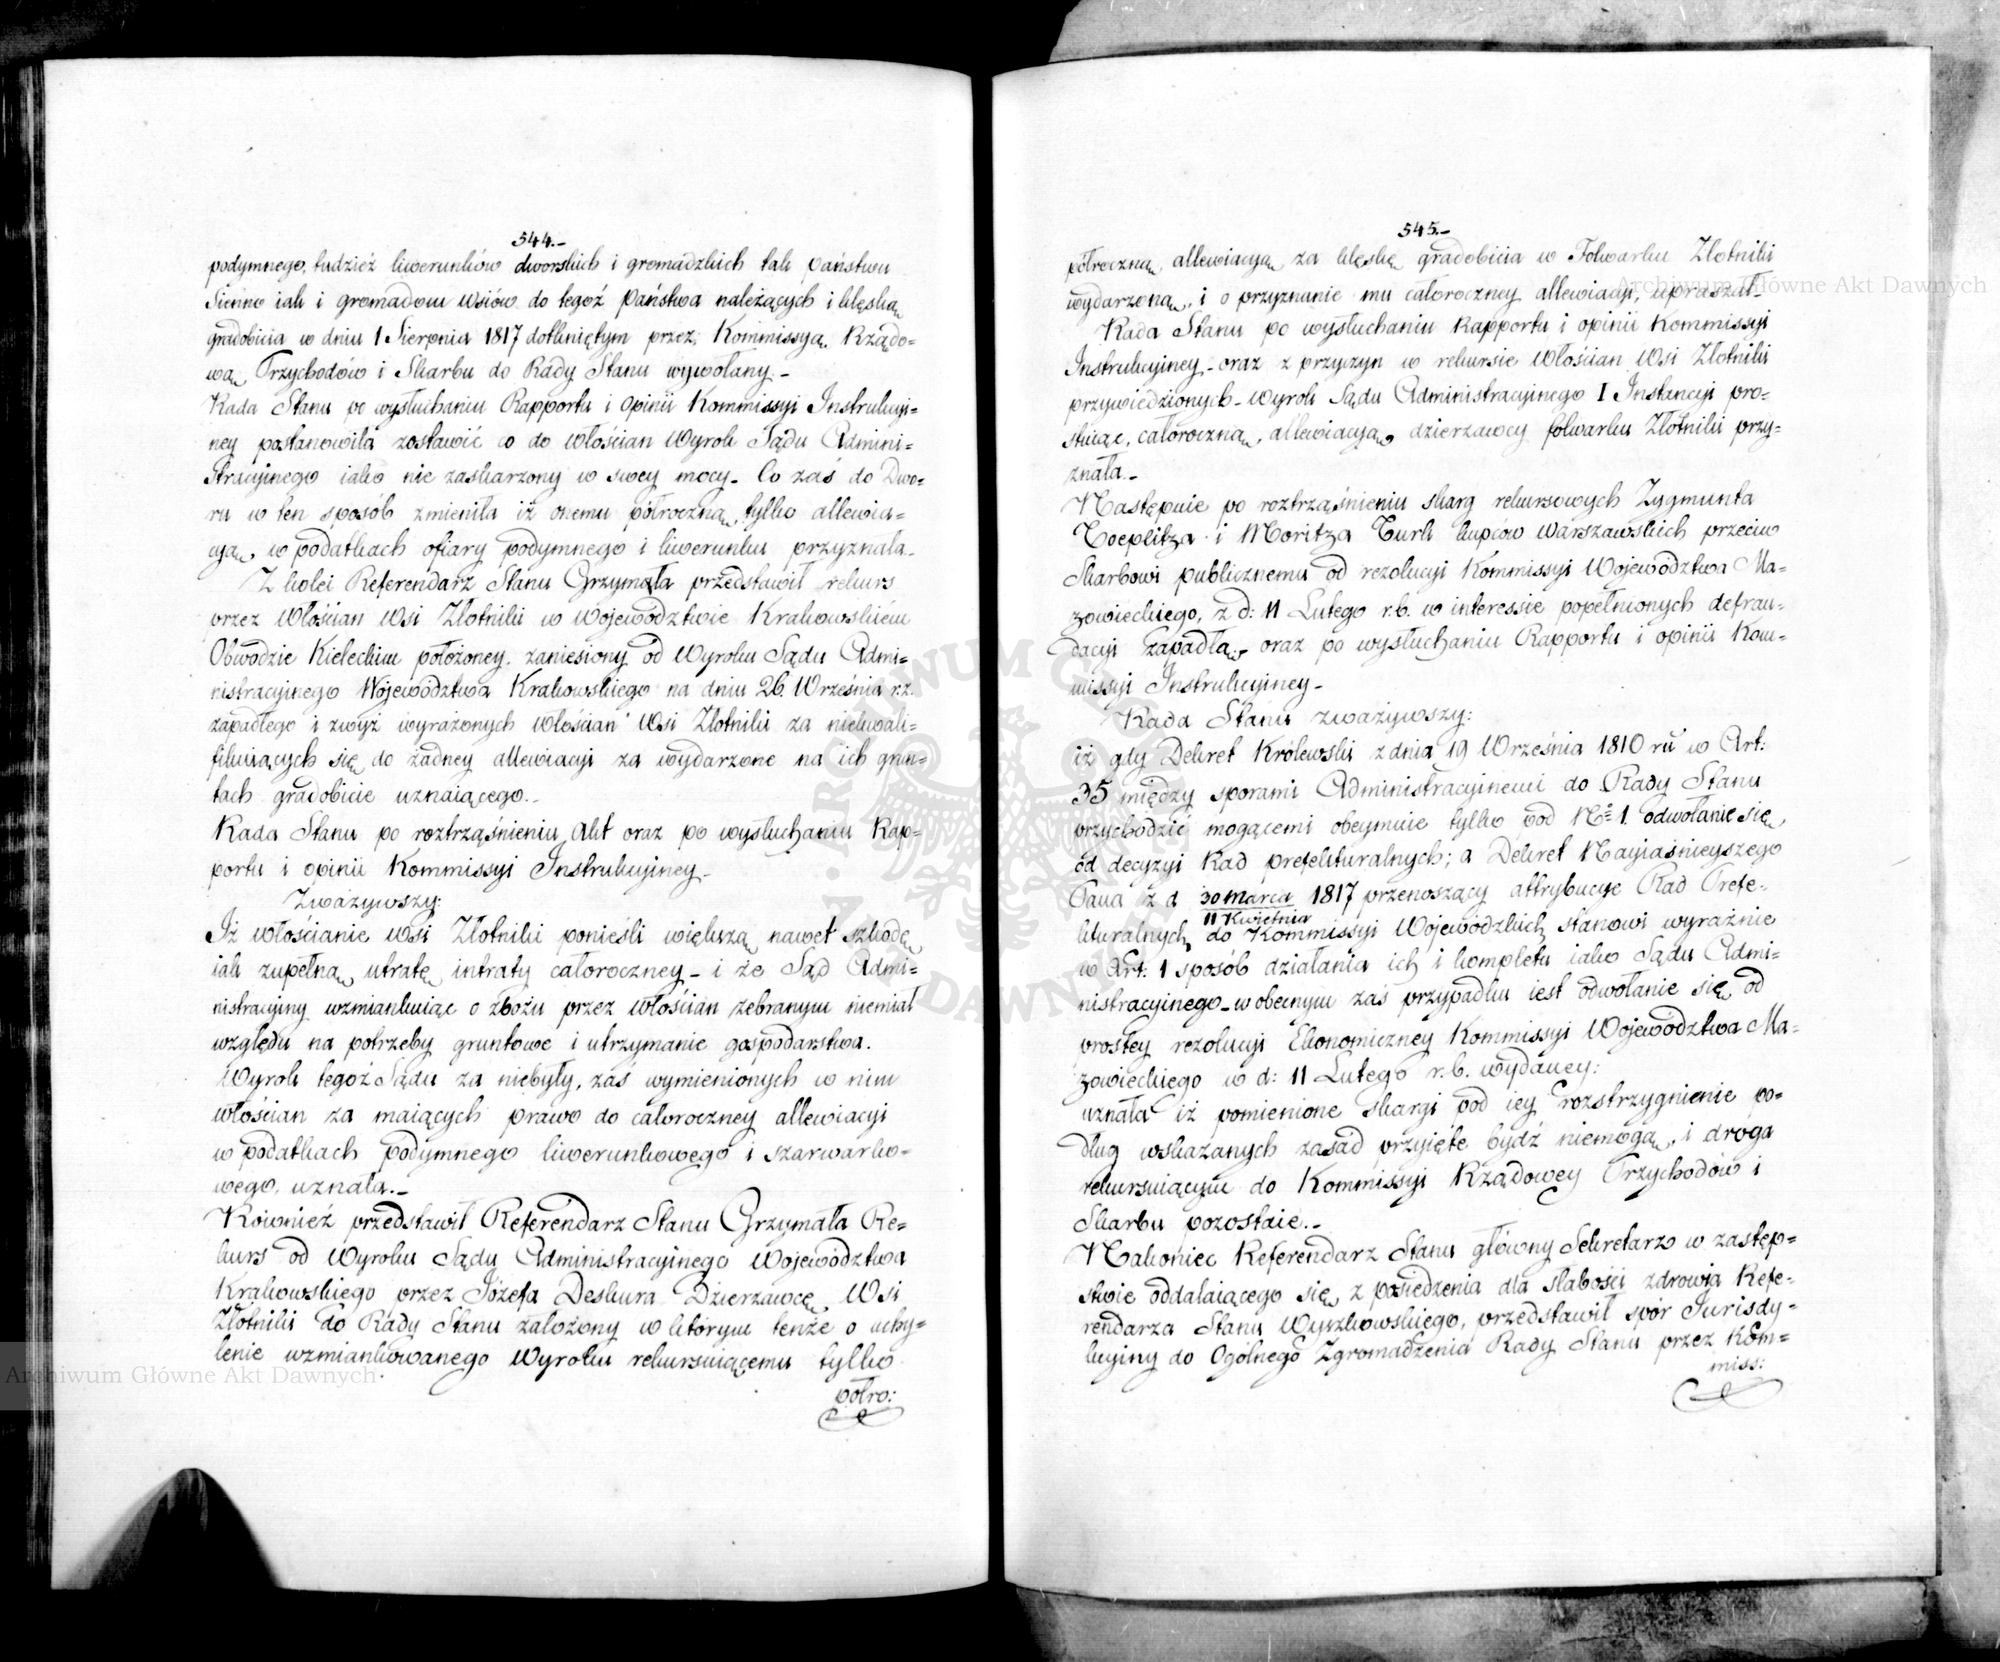 544.-
podymnego, tudzież liwerunków dworskich i gromadzkich tak państwu
Sienno iak i gromadom wsiów do tegoż Państwa należących i klęską
gradobicia w dniu 1 Sierpnia 1817 dotkniętym przez Kommissyą Rządo=
wą Przychodów i Skarbu do Rady Stanu wywołany.-
Rada Stanu po wysłuchaniu Rapportu i opinii Kommissyi Instrukcyi=
ney postanowiła zostawić co do włościan Wyrok Sądu Admini=
stracyinego iako nie zaskarżony w swey mocy- Co zaś do Dwo=
ru w ten sposób zmieniła iż onemu półroczną, tylko allewia=
cyą, w podatkach ofiary podymnego i liwerunku przyznała.-
Z kolei Referendarz Stanu Grzymała przedstawił rekurs
przez Włościan Wsi Złotniki w województwie Krakowskiém
Obwodzie Kieleckim położoney. zaniesiony od Wyroku Sądu Admi=
nistracyjnego Województwa Krakowskiego na dniu 26. Września r.z.
zapadłego i zwyż wyrażonych Włościan Wsi Złotniki za niekwali=
fikuiących się do żadney allewiacyi za wydarzone na ich grun=
tach gradobicie uznaiącego.-
Rada Stanu po roztrząśnieniu Akt oraz po wysłuchaniu Rap=
portu i opinii Kommissyi Instrukcyiney-
Zważywszy:
Iż włościanie wsi Złotniki ponieśli większą nawet szkodę
iak zupełną utratę intraty całoroczney- i że Sąd Admi=
nistracyiny wzmiankuiąc o zbożu przez włościan zebranym niemiał
względu na potrzeby gruntowe i utrzymanie gospodarstwa.
Wyrok tegoż Sądu za niebyły, zaś wymienionych w nim
włościan za maiących prawo do całoroczney allewiacyi
w podatkach podymnego liwerunkowego i szarwarko=
wego, uznała.-
Również przedstawił Referendarz Stanu Grzymała Re=
kurs od Wyroku Sądu Administracyjnego Województwa
Krakowskiego przez Józefa Deskura Dzierzawcę Wsi
Złotniki do Rady Stanu założony w którym tenże o uchy=
lenie wzmiankowanego Wyroku rekursuiącemu tylko
półro:
545.-
półroczną, allewiacyą za klęskę gradobicia w Folwarku Złotniki
wydarzoną, i o przyznanie mu całoroczney allewiacyi, upraszał-
Rada Stanu po wysłuchaniu Rapportu i opinii Kommissyi
Instrukcyiney- oraz z przyczyn w rekursie Włościan Wsi Złotniki
przywiedzionych- wyrok Sądu Administracyinego I Instancyi pro=
stuiąc, całoroczną, allewiacyą, dzierzawcy folwarku Złotniki przy=
znała.-
Następnie po roztrząśnieniu skarg rekursowych Zygmunta
Toeplitza i Moritza Turk kupców Warszawskich przeciw
Skarbowi publicznemu od rezolucyi Kommissyi Województwa Ma=
zowieckiego, z d: 11 Lutego r.b. w interessie popełnionych defrau=
dacyi zapadłą,- oraz po wysłuchaniu Rapportu i opinii Kom=
missyi Instrukcyiney-
Rada Stanu zważywszy:
iż gdy Dekret Królewski z dnia 19 Września 1810 ru w Art:
35 między sporami Administracyinemi do Rady Stanu
przychodzić mogącemi obeymuie tylko pod No 1. odwołanie się
od decyzyi Rad prefekturalnych; a Dekret Nayiaśnieyszego
Pana z d 30 marca 1817 przenoszący attrybucye Rad Prefe=
11 Kwietnia
kturalnych do Kommissyi Wojewódzkich, stanowi wyraźnie
w Art: 1 sposób działania ich i kompletu iako Sądu Admi=
nistracyinego- w obecnym zaś przypadku iest odwołanie się od
prostey rezolucyi Ekonomiczney Kommissyi Województwa Ma=
zowieckiego w d: 11 Lutego r.b. wydaney:
uznała iż pomienione skargi pod iey rozstrzygnienie po=
dług wskazanych zasad przyięte bydź niemogą, i droga
rekursuiącym do Kommissyi Rządowey Przychodów i
Skarbu pozostaie.-
Nakoniec Referendarz Stanu główny Sekretarz w zastęp=
stwie oddalaiącego się z posiedzenia dla słabości zdrowia Refe=
rendarza Stanu Wyszkowskiego, przedstawił spór Jurisdy=
kcyiny do Ogólnego Zgromadzenia Rady Stanu przez Kom=
miss:
Archiwum Główne Akt Dawnych
Archiwum Główne Akt Dawnych
ARCHIWUM GŁÓWNE AKT DAWNYCH